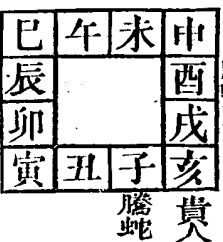 巳午未申
辰酉
卯戌
寅丑子亥
螣蛇
貴人